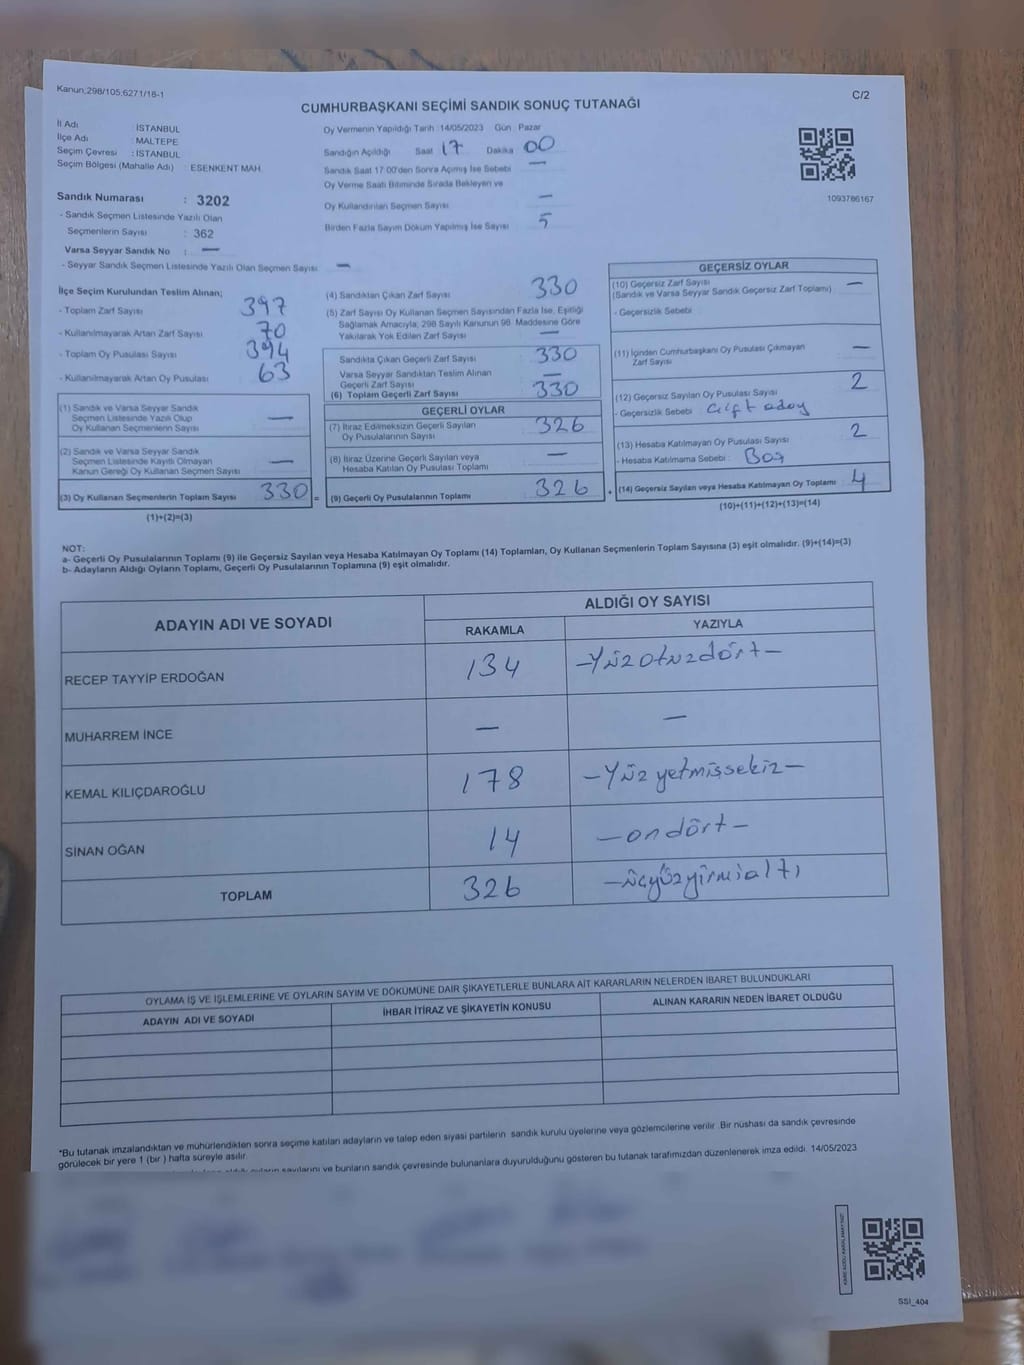 Kanun;298/105;6271/18-1
C/2
CUMHURBAŞKANI SEÇİMİ SANDIK SONUÇ TUTANAĞI
İl Adı : İSTANBUL
İlçe Adı : MALTEPE
Seçim Çevresi : İSTANBUL
Seçim Bölgesi (Mahalle Adı) : ESENKENT MAH.
Sandık Numarası : 3202
- Sandık Seçmen Listesinde Yazılı Olan
Seçmenlerin Sayısı : 362
Varsa Seyyar Sandık No : —
- Seyyar Sandık Seçmen Listesinde Yazılı Olan Seçmen Sayısı —
Oy Vermenin Yapıldığı Tarih :14/05/2023 Gün : Pazar
Sandığın Açıldığı Saat 17 Dakika 00
Sandık Saat 17:00'den Sonra Açımış İse Sebebi —
Oy Verme Saati Bitiminde Sırada Bekleyen ve
Oy Kullandırılan Seçmen Sayısı —
Birden Fazla Sayım Döküm Yapılmış İse Sayısı 5
1093786167
İlçe Seçim Kurulundan Teslim Alınan;
- Toplam Zarf Sayısı 397
- Kullanılmayarak Artan Zarf Sayısı 70
- Toplam Oy Pusulası Sayısı 394
- Kullanılmayarak Artan Oy Pusulası 63
(1) Sandık ve Varsa Seyyar Sandık
Seçmen Listesinde Yazılı Olup
Oy Kullanan Seçmenlerin Sayısı —
(2) Sandık ve Varsa Seyyar Sandık
Seçmen Listesinde Kayıtlı Olmayan
Kanun Gereği Oy Kullanan Seçmen Sayısı —
(3) Oy Kullanan Seçmenlerin Toplam Sayısı 330 =
(1)+(2)=(3)
(4) Sandıktan Çıkan Zarf Sayısı 330
(5) Zarf Sayısı Oy Kullanan Seçmen Sayısından Fazla İse, Eşitliği
Sağlamak Amacıyla, 298 Sayılı Kanunun 98. Maddesine Göre
Yakılarak Yok Edilen Zarf Sayısı —
Sandıkta Çıkan Geçerli Zarf Sayısı 330
Varsa Seyyar Sandıktan Teslim Alınan
Geçerli Zarf Sayısı —
(6) Toplam Geçerli Zarf Sayısı 330
GEÇERLİ OYLAR
(7) İtiraz Edilmeksizin Geçerli Sayılan
Oy Pusulalarının Sayısı 326
(8) İtiraz Üzerine Geçerli Sayılan veya
Hesaba Katılan Oy Pusulası Toplamı —
(9) Geçerli Oy Pusulalarının Toplamı 326 +
GEÇERSİZ OYLAR
(10) Geçersiz Zarf Sayısı —
(Sandık ve Varsa Seyyar Sandık Geçersiz Zarf Toplamı)
- Geçersizlik Sebebi
(11) İçinden Cumhurbaşkanı Oy Pusulası Çıkmayan
Zarf Sayısı —
(12) Geçersiz Sayılan Oy Pusulası Sayısı 2
- Geçersizlik Sebebi Çift aday
(13) Hesaba Katılmayan Oy Pusulası Sayısı 2
- Hesaba Katılmama Sebebi : Boş
(14) Geçersiz Sayılan veya Hesaba Katılmayan Oy Toplamı 4
(10)+(11)+(12)+(13)=(14)
NOT:
a- Geçerli Oy Pusulalarının Toplamı (9) ile Geçersiz Sayılan veya Hesaba Katılmayan Oy Toplamı (14) Toplamları, Oy Kullanan Seçmenlerin Toplam Sayısına (3) eşit olmalıdır. (9)+(14)=(3)
b- Adayların Aldığı Oyların Toplamı, Geçerli Oy Pusulalarının Toplamına (9) eşit olmalıdır.
ADAYIN ADI VE SOYADI
ALDIĞI OY SAYISI
RAKAMLA YAZIYLA
RECEP TAYYİP ERDOĞAN 134 -Yüzotuzdört-
MUHARREM İNCE — —
KEMAL KILIÇDAROĞLU 178 -Yüzyetmişsekiz-
SİNAN OĞAN 14 -ondört-
TOPLAM 326 -üçyüzyirmialtı
OYLAMA İŞ VE İŞLEMLERİNE VE OYLARIN SAYIM VE DÖKÜMÜNE DAİR ŞİKAYETLERLE BUNLARA AİT KARARLARIN NELERDEN İBARET BULUNDUKLARI
ADAYIN ADI VE SOYADI İHBAR İTİRAZ VE ŞİKAYETİN KONUSU ALINAN KARARIN NEDEN İBARET OLDUĞU
*Bu tutanak imzalandıktan ve mühürlendikten sonra seçime katılan adayların ve talep eden siyasi partilerin sandık kurulu üyelerine veya gözlemcilerine verilir. Bir nüshası da sandık çevresinde
görülecek bir yere 1 (bir ) hafta süreyle asılır.
sayılarını ve bunların sandık çevresinde bulunanlara duyurulduğunu gösteren bu tutanak tarafımızdan düzenlenerek imza edildi. 14/05/2023
SSI_404